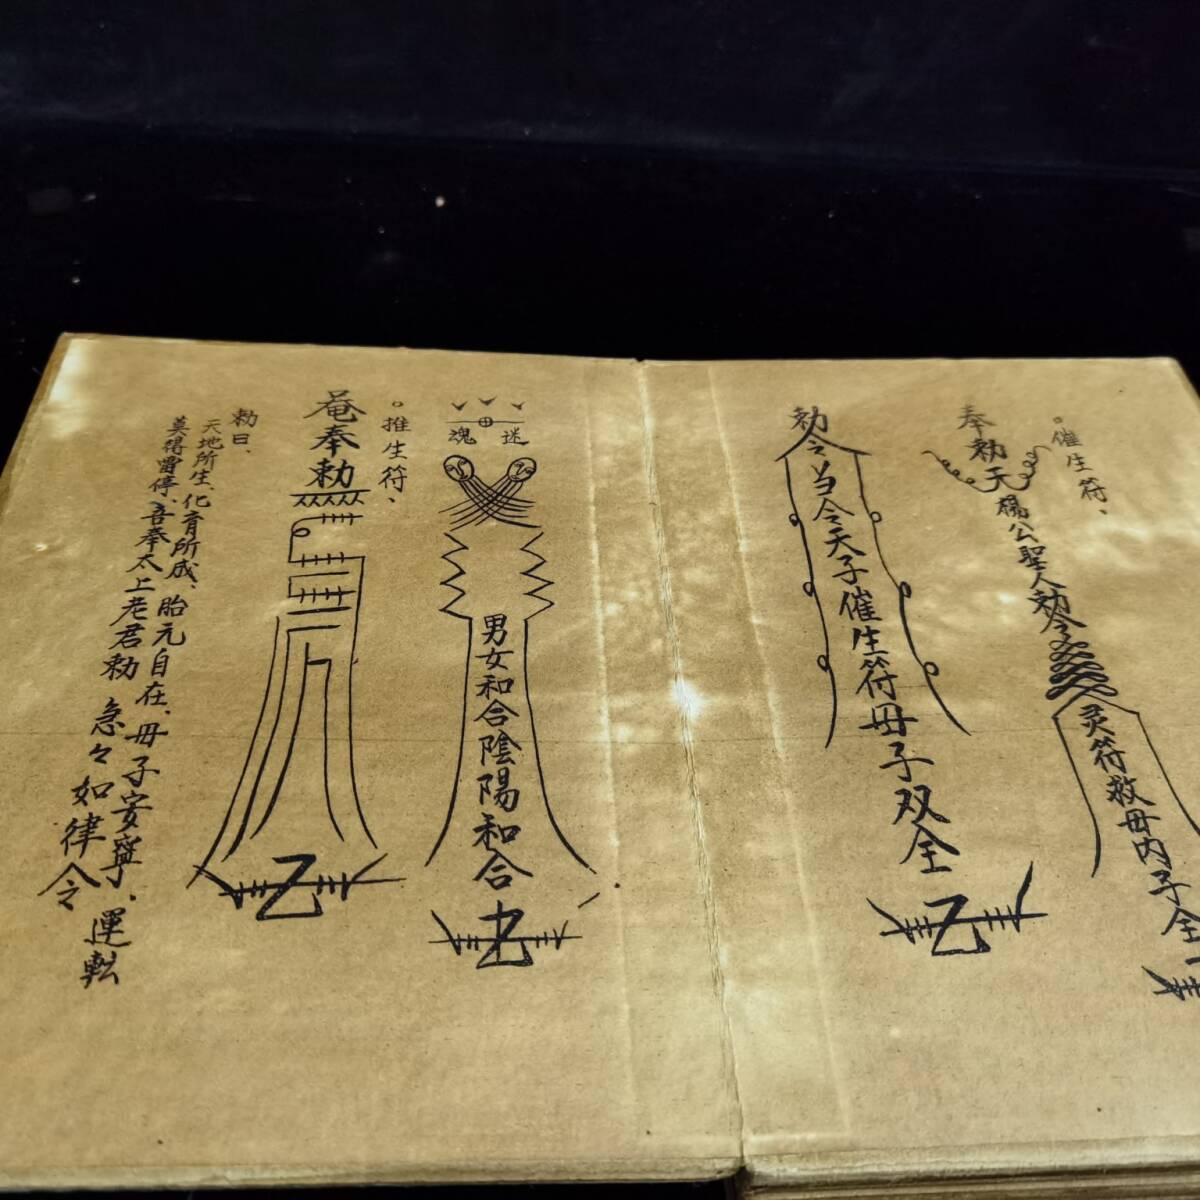 。催生符、
奉勅天楊公聖人勅令
灵符救母内子全
勅令当令天子催生符母子双全
迷
魂
男女和合陰陽和合
。推生符、
菴奉勅
勅曰、
天地所生、化育所成、胎元自在、母子安寧、運転
莫得畄停、吾奉太上老君勅 急々如律令